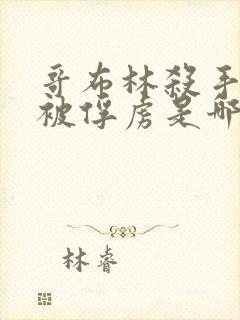 哥布林殺手
被俘虏是哪
林睿